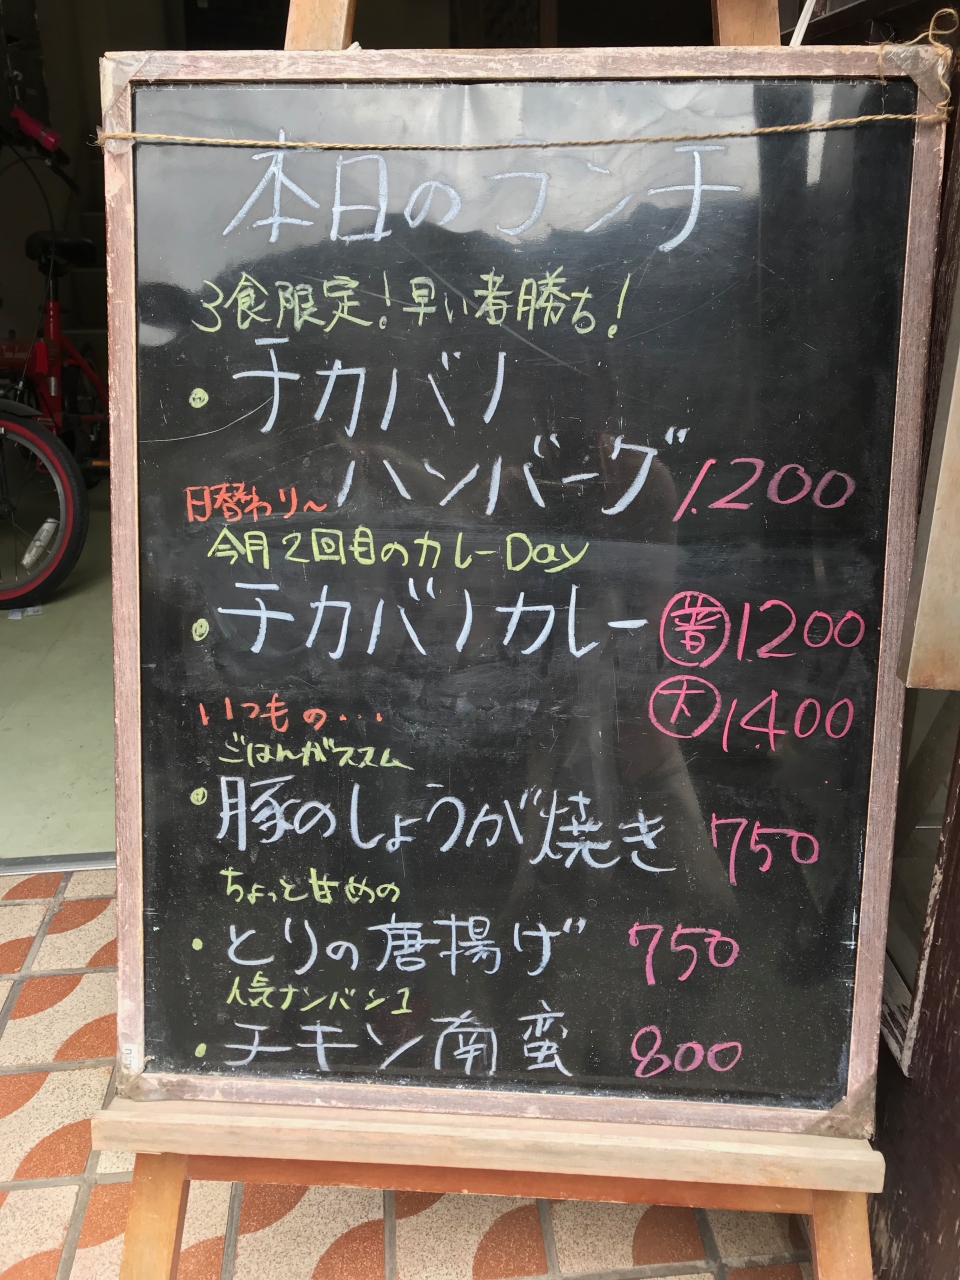 本日のランチ
3食限定!早い者勝ち!
・チカバノ
ハンバーグ 1.200
日替わり〜
今月2回目のカレーDay
・チカバノカレー 普 1200
大 1400
いつもの・・・
ごはんがススム
・豚のしょうが焼き 750
ちょっと甘めの
・とりの唐揚げ 750
人気ナンバン1
・チキン南蛮 800